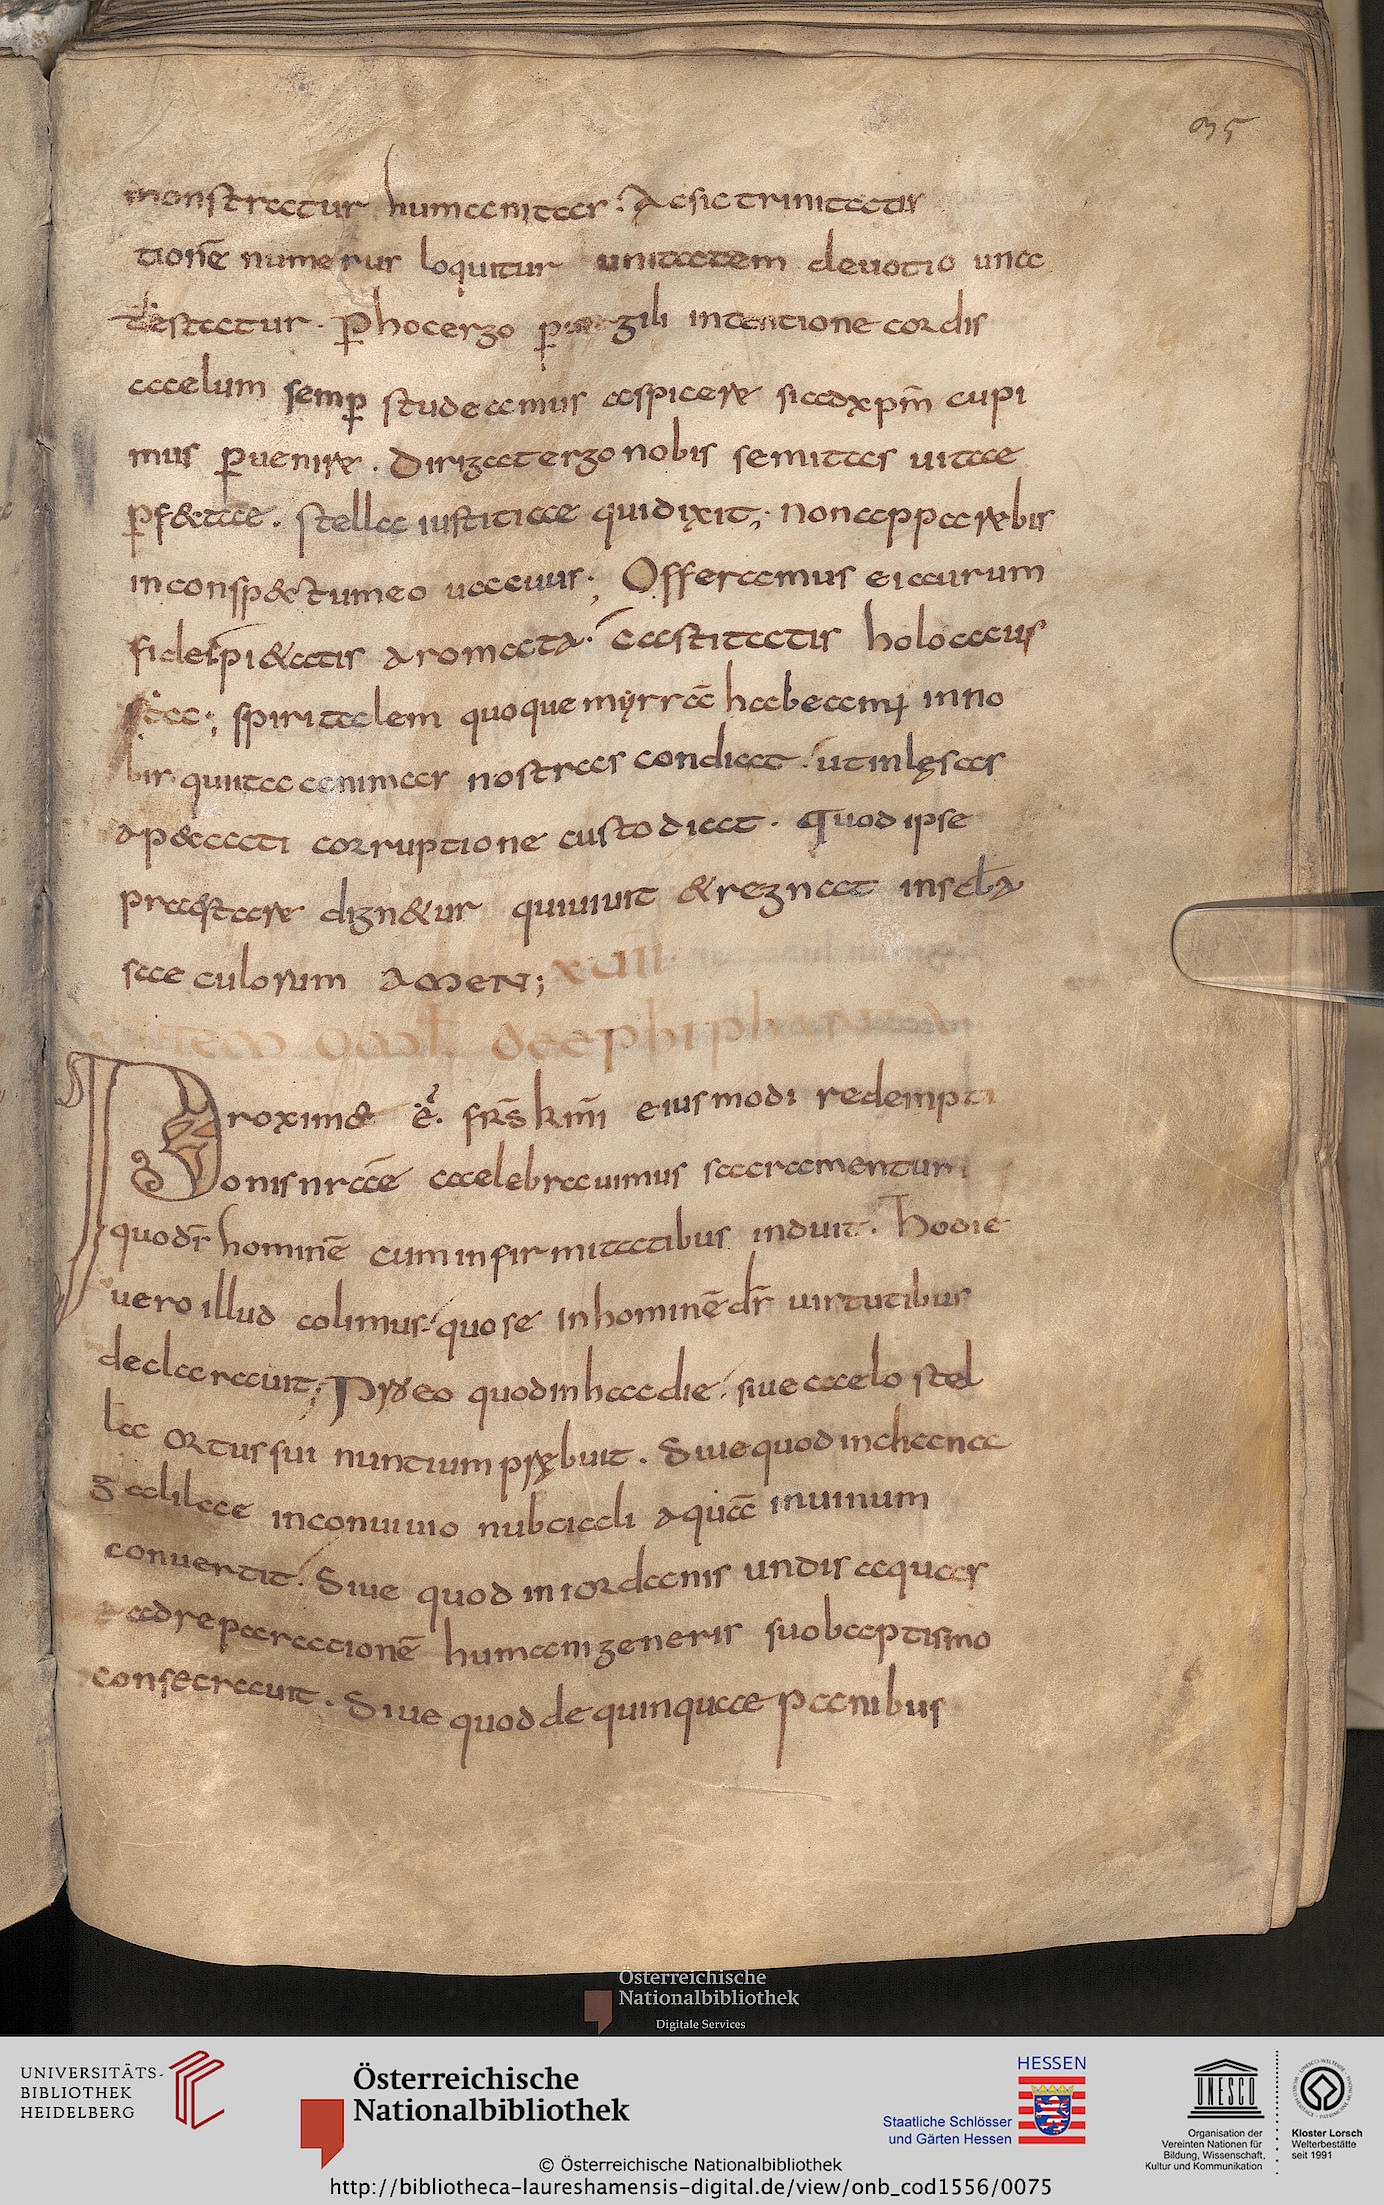 35
monstratur humanitas. Ac sic trinitatis
tionē numerus loquitur unitatem deuotio una
testatur. ꝑ hoc ergo ꝑuigili intentione cordis
caelum semꝑ studeamus aspicere si ad xpm̄ cupi
mus ꝑuenire. Dirigat ergo nobis semitas uitae
ꝑf&tae. stella iustitiae qui dixit; non apparebis
in conspectu meo uacuus; Offeramus ei aurum
fidei pi&atis aromata. castitatis holocaus
ta; spiritalem quoque myrrā habeamus in no
bis qui ita animas nostras condiat. ut inlęsas
a peccati corruptione custodiat. Quod ipse
praestare dign&ur qui uiuit & regnat in sc̄la
saeculorum AMEN; XVIII
ITEM OMEL DE EPHIPHANIA
Proxime ē. frs̄ km̄i eiusmodi redempti
onis nrāe caelebrauimus sacramentum
quo ds̄ hominē cum infirmitatibus induit. hodie
uero illud colimus. quo se in hominē ds̄ uirtutibus
declarauit; Pro eo quod in hac die. siue caelo stel
la ortus sui nuntium prębuit. Siue quod in chana
galilae in conuiuio nubciali aquā in uinum
conuertit. Siue quod in iordanis undis aquas
ad reparationē humani generis suo baptismo
consecrauit. Siue quod de quinque panibus
Österreichische
Nationalbibliothek
Digitale Services
UNIVERSITÄTS-
BIBLIOTHEK
HEIDELBERG
Österreichische
Nationalbibliothek
HESSEN
Staatliche Schlösser
und Gärten Hessen
UNESCO
Organisation der
Vereinten Nationen für
Bildung, Wissenschaft,
Kultur und Kommunikation
Kloster Lorsch
Welterbestätte
seit 1991
© Österreichische Nationalbibliothek
http://bibliotheca-laureshamensis-digital.de/view/onb_cod1556/0075